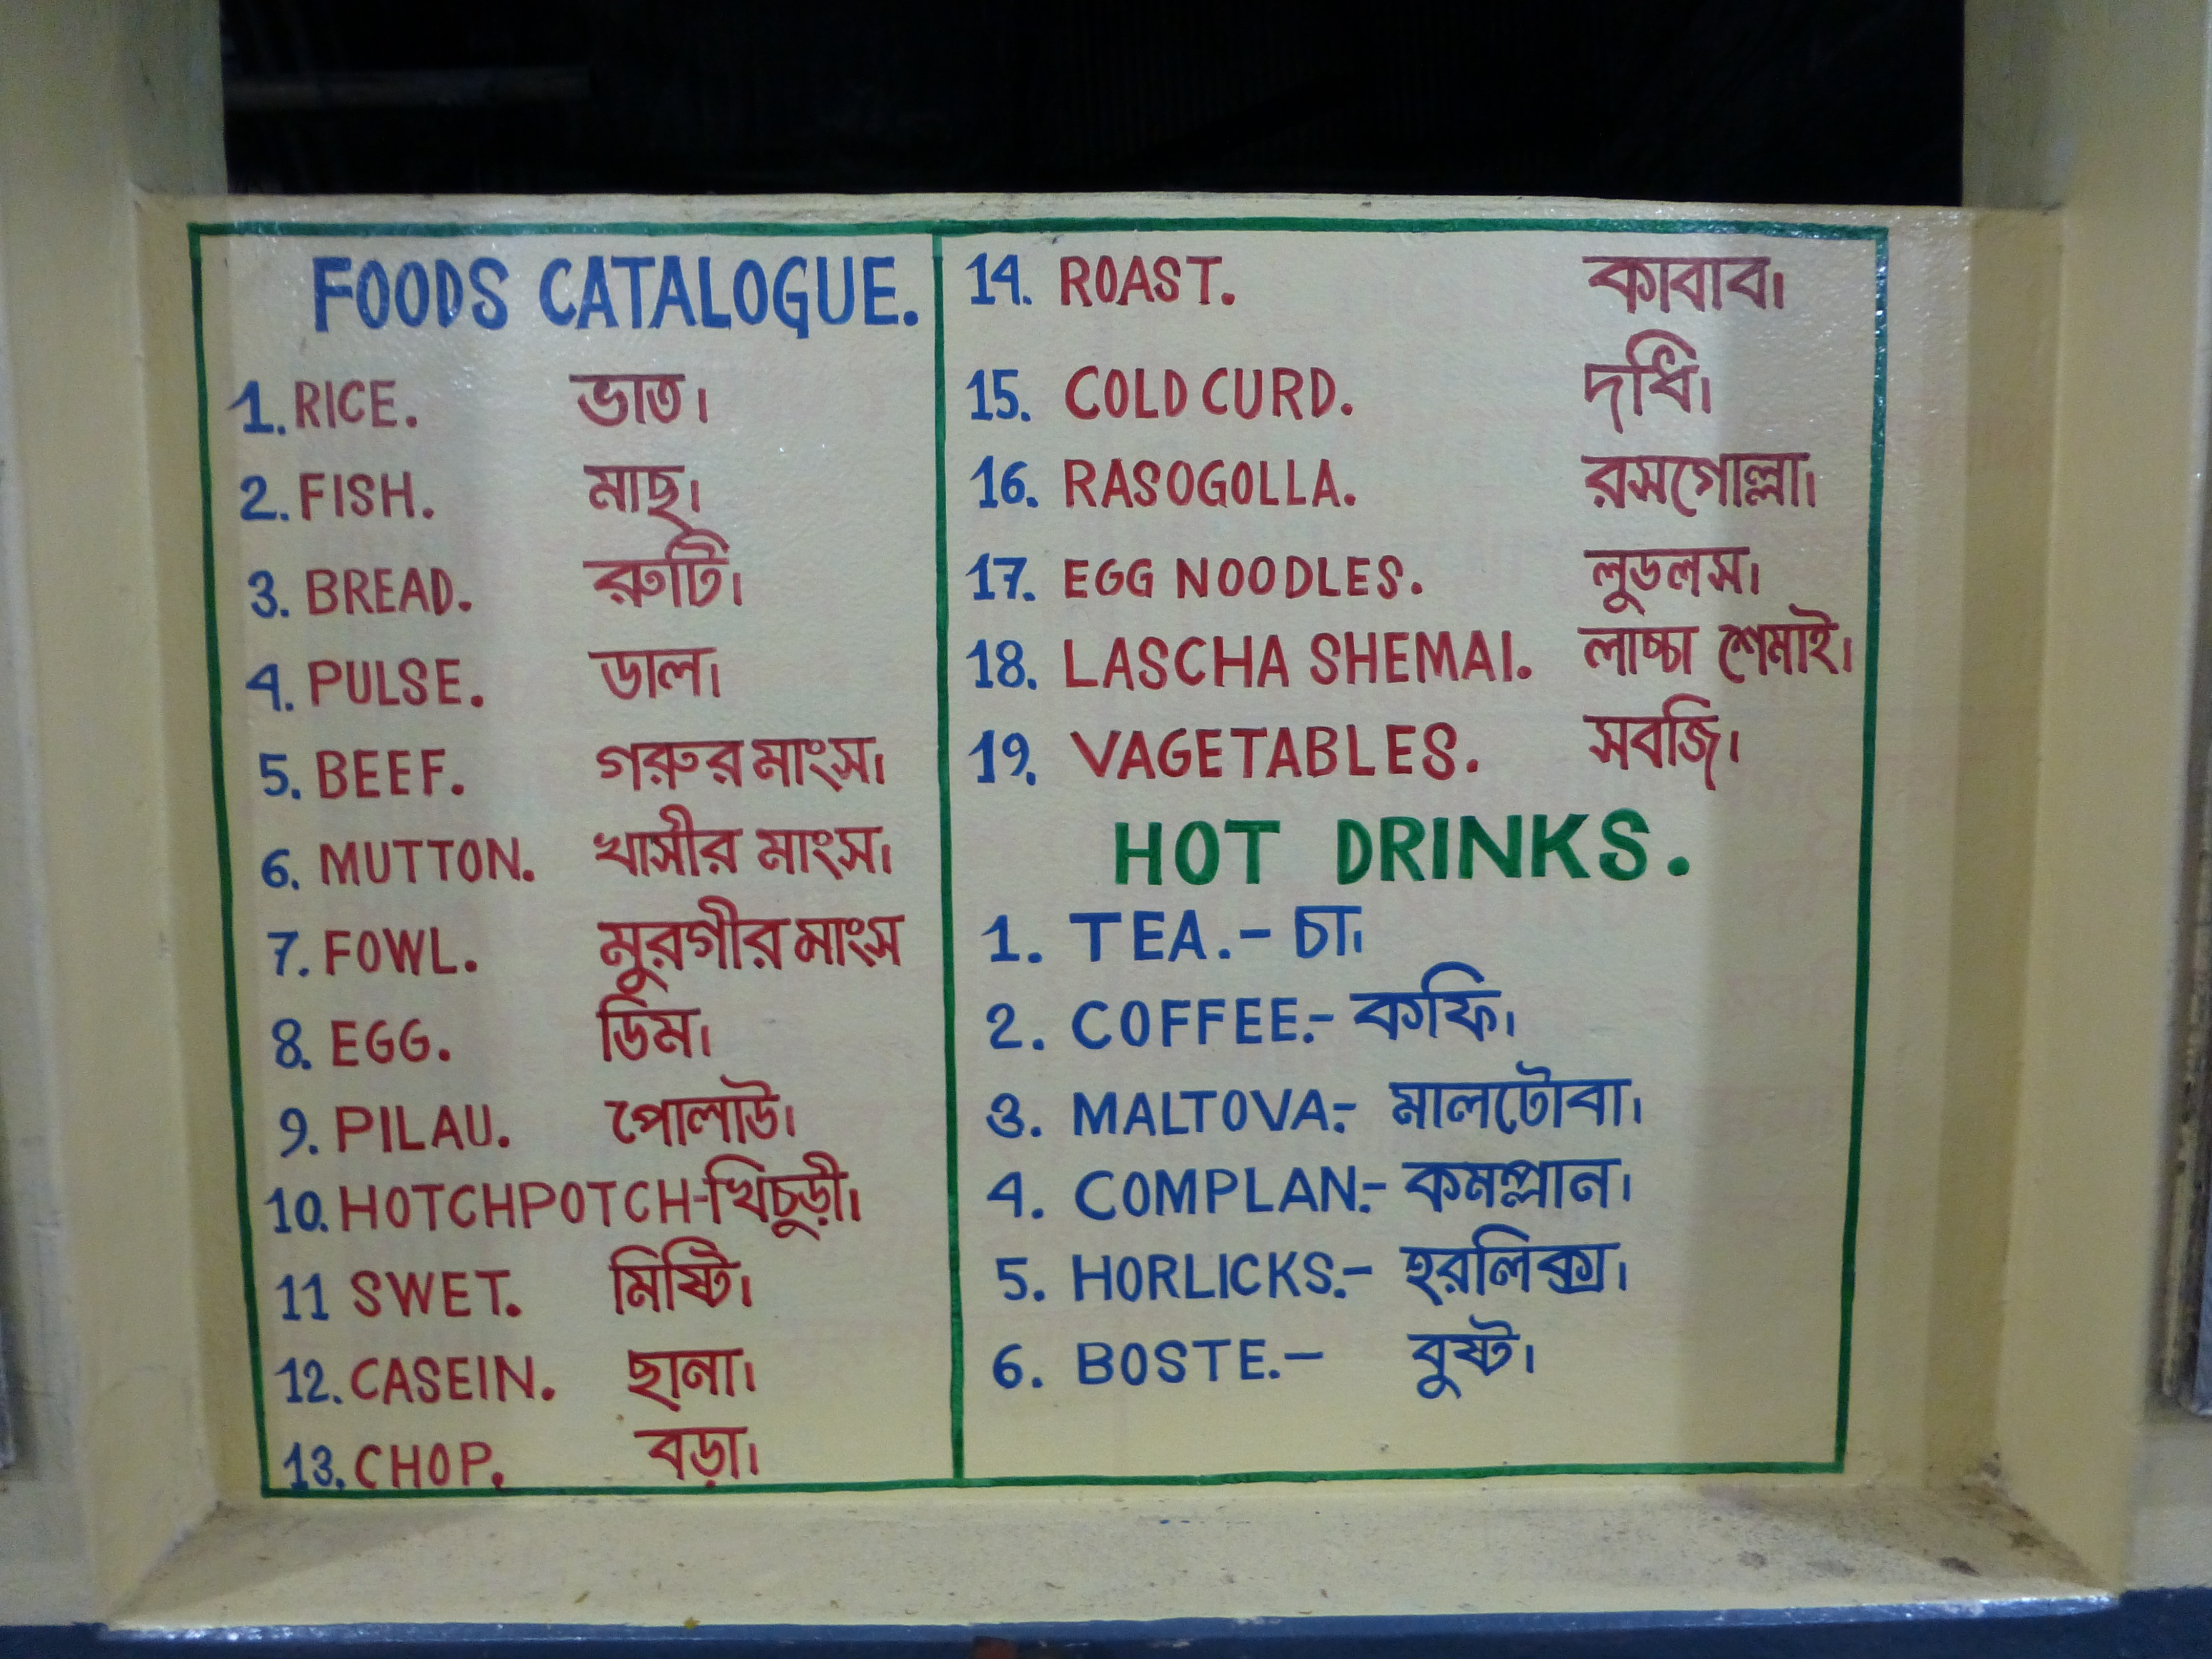 FOODS CATALOGUE.
1. RICE. ভাত।
2. FISH. মাছ।
3. BREAD. রুটি।
4. PULSE. ডাল।
5. BEEF. গরুর মাংস।
6. MUTTON. খাসীর মাংস।
7. FOWL. মুরগীর মাংস
8. EGG. ডিম।
9. PILAU. পোলাউ।
10. HOTCHPOTCH-খিচুড়ী।
11 SWET. মিষ্টি।
12. CASEIN. ছানা।
13. CHOP. বড়া।
14. ROAST. কাবাব।
15. COLD CURD. দধি।
16. RASOGOLLA. রসগোল্লা।
17. EGG NOODLES. লুডলস।
18. LASCHA SHEMAI. লাচ্চা শেমাই।
19. VAGETABLES. সবজি।
HOT DRINKS.
1. TEA.- চা।
2. COFFEE.- কফি।
3. MALTOVA.- মালটোবা।
4. COMPLAN.- কমপ্লান।
5. HORLICKS.- হরলিক্স।
6. BOSTE.- বুষ্ট।